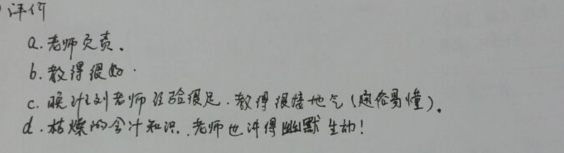 评价
a. 老师负责.
b. 教得很好.
c. 刘老师经验很足. 教得很接地气 (通俗易懂).
d. 枯燥的会计知识. 老师也讲得幽默生动!